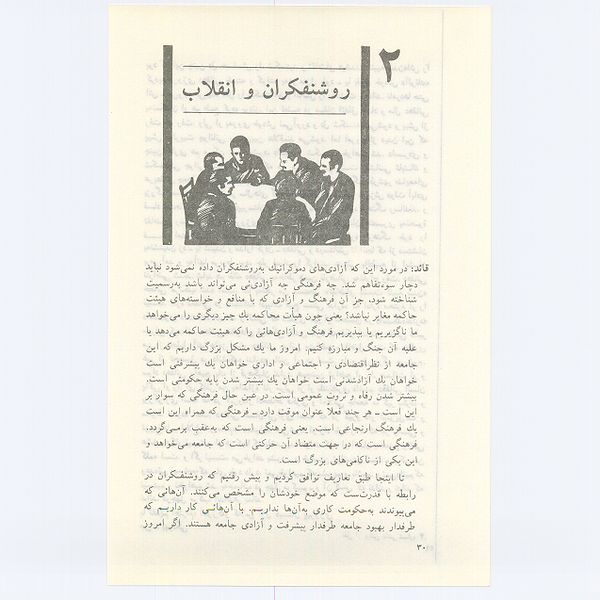 ۲
روشنفکران و انقلاب
قائد: در مورد این که آزادی‌های دموکراتیك به‌روشنفکران داده نمی‌شود نباید
دچار سوءتفاهم شد. چه فرهنگی چه آزادی‌ئی می‌تواند باشد به‌رسمیت
شناخته شود، جز آن فرهنگ و آزادی که با منافع و خواسته‌های هیئت
حاکمه مغایر نباشد؟ یعنی چون هیأت محاکمه یك چیز دیگری را می‌خواهد
ما ناگزیریم یا بپذیریم فرهنگ و آزادی‌هائی را که هیئت حاکمه می‌دهد یا
علیه آن جنگ و مبارزه کنیم. امروز ما یك مشکل بزرگ داریم که این
جامعه از نظر اقتصادی و اجتماعی و اداری خواهان یك پیشرفتی است
خواهان یك آزادشدنی است خواهان یك بیشتر شدن پایه حکومتی است.
بیشتر شدن رفاه و ثروت عمومی است. در عین حال فرهنگی که سوار بر
این است ـ هر چند فعلاً عنوان موقت دارد ـ فرهنگی که همراه این است
یك فرهنگ ارتجاعی است. یعنی فرهنگی است که به‌عقب برمی‌گردد.
فرهنگی است که در جهت متضاد آن حرکتی است که جامعه می‌خواهد و
این یکی از ناکامی‌های بزرگ است.
تا اینجا طبق تعاریف توافق کردیم و پیش رفتیم که روشنفکران در
رابطه با قدرت‌ست که موضع خودشان را مشخص می‌کنند. آن‌هائی که
می‌پیوندند به‌حکومت کاری به‌آن‌ها نداریم، با آن‌هائی کار داریم که
طرفدار بهبود جامعه طرفدار پیشرفت و آزادی جامعه هستند. اگر امروز
۳۰